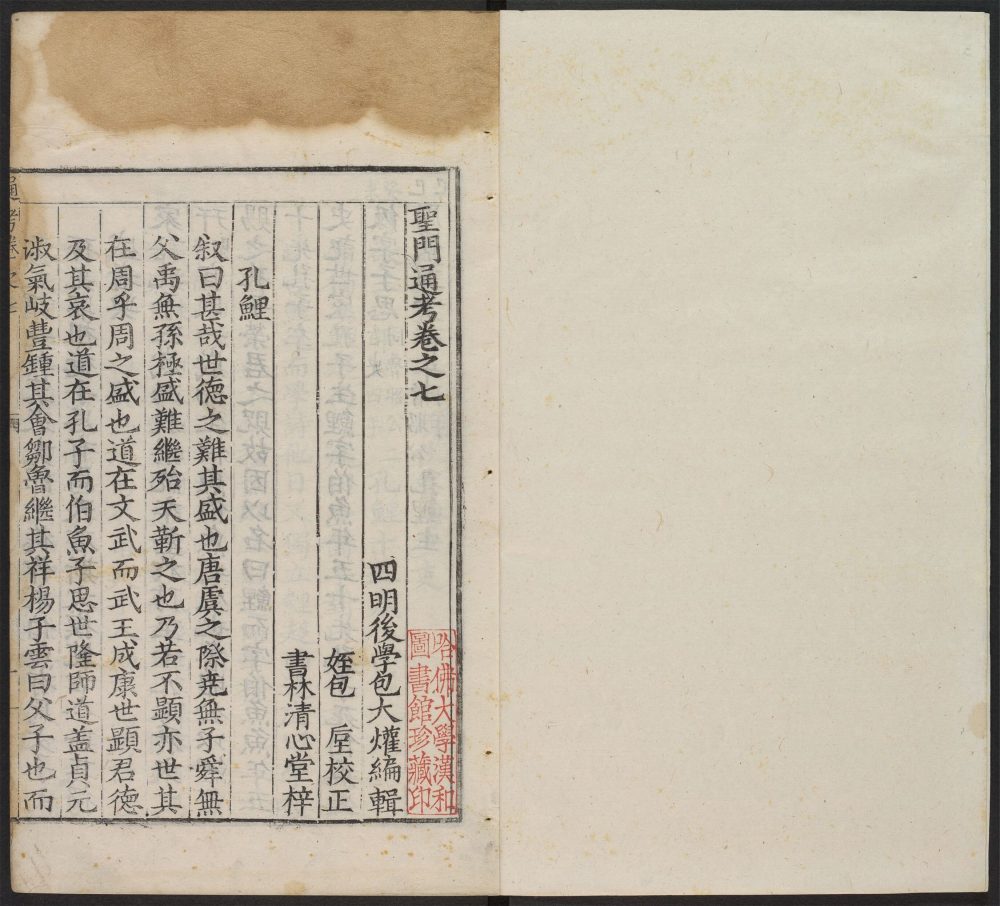 聖門通考卷之七
四明後學包大爟編輯
姪包庢校正
書林清心堂梓
孔鯉
叙曰甚哉世德之難其盛也唐虞之際堯無子舜無
父禹無孫極盛難繼殆天靳之也乃若不顯亦世其
在周乎周之盛也道在文武而武王成康世顯君德
及其衰也道在孔子而伯魚子思世隆師道盖貞元
淑氣岐豊鍾其會鄒魯繼其祥楊子雲曰父子也而
通考卷之七
哈佛大學漢和
圖書館珍藏印